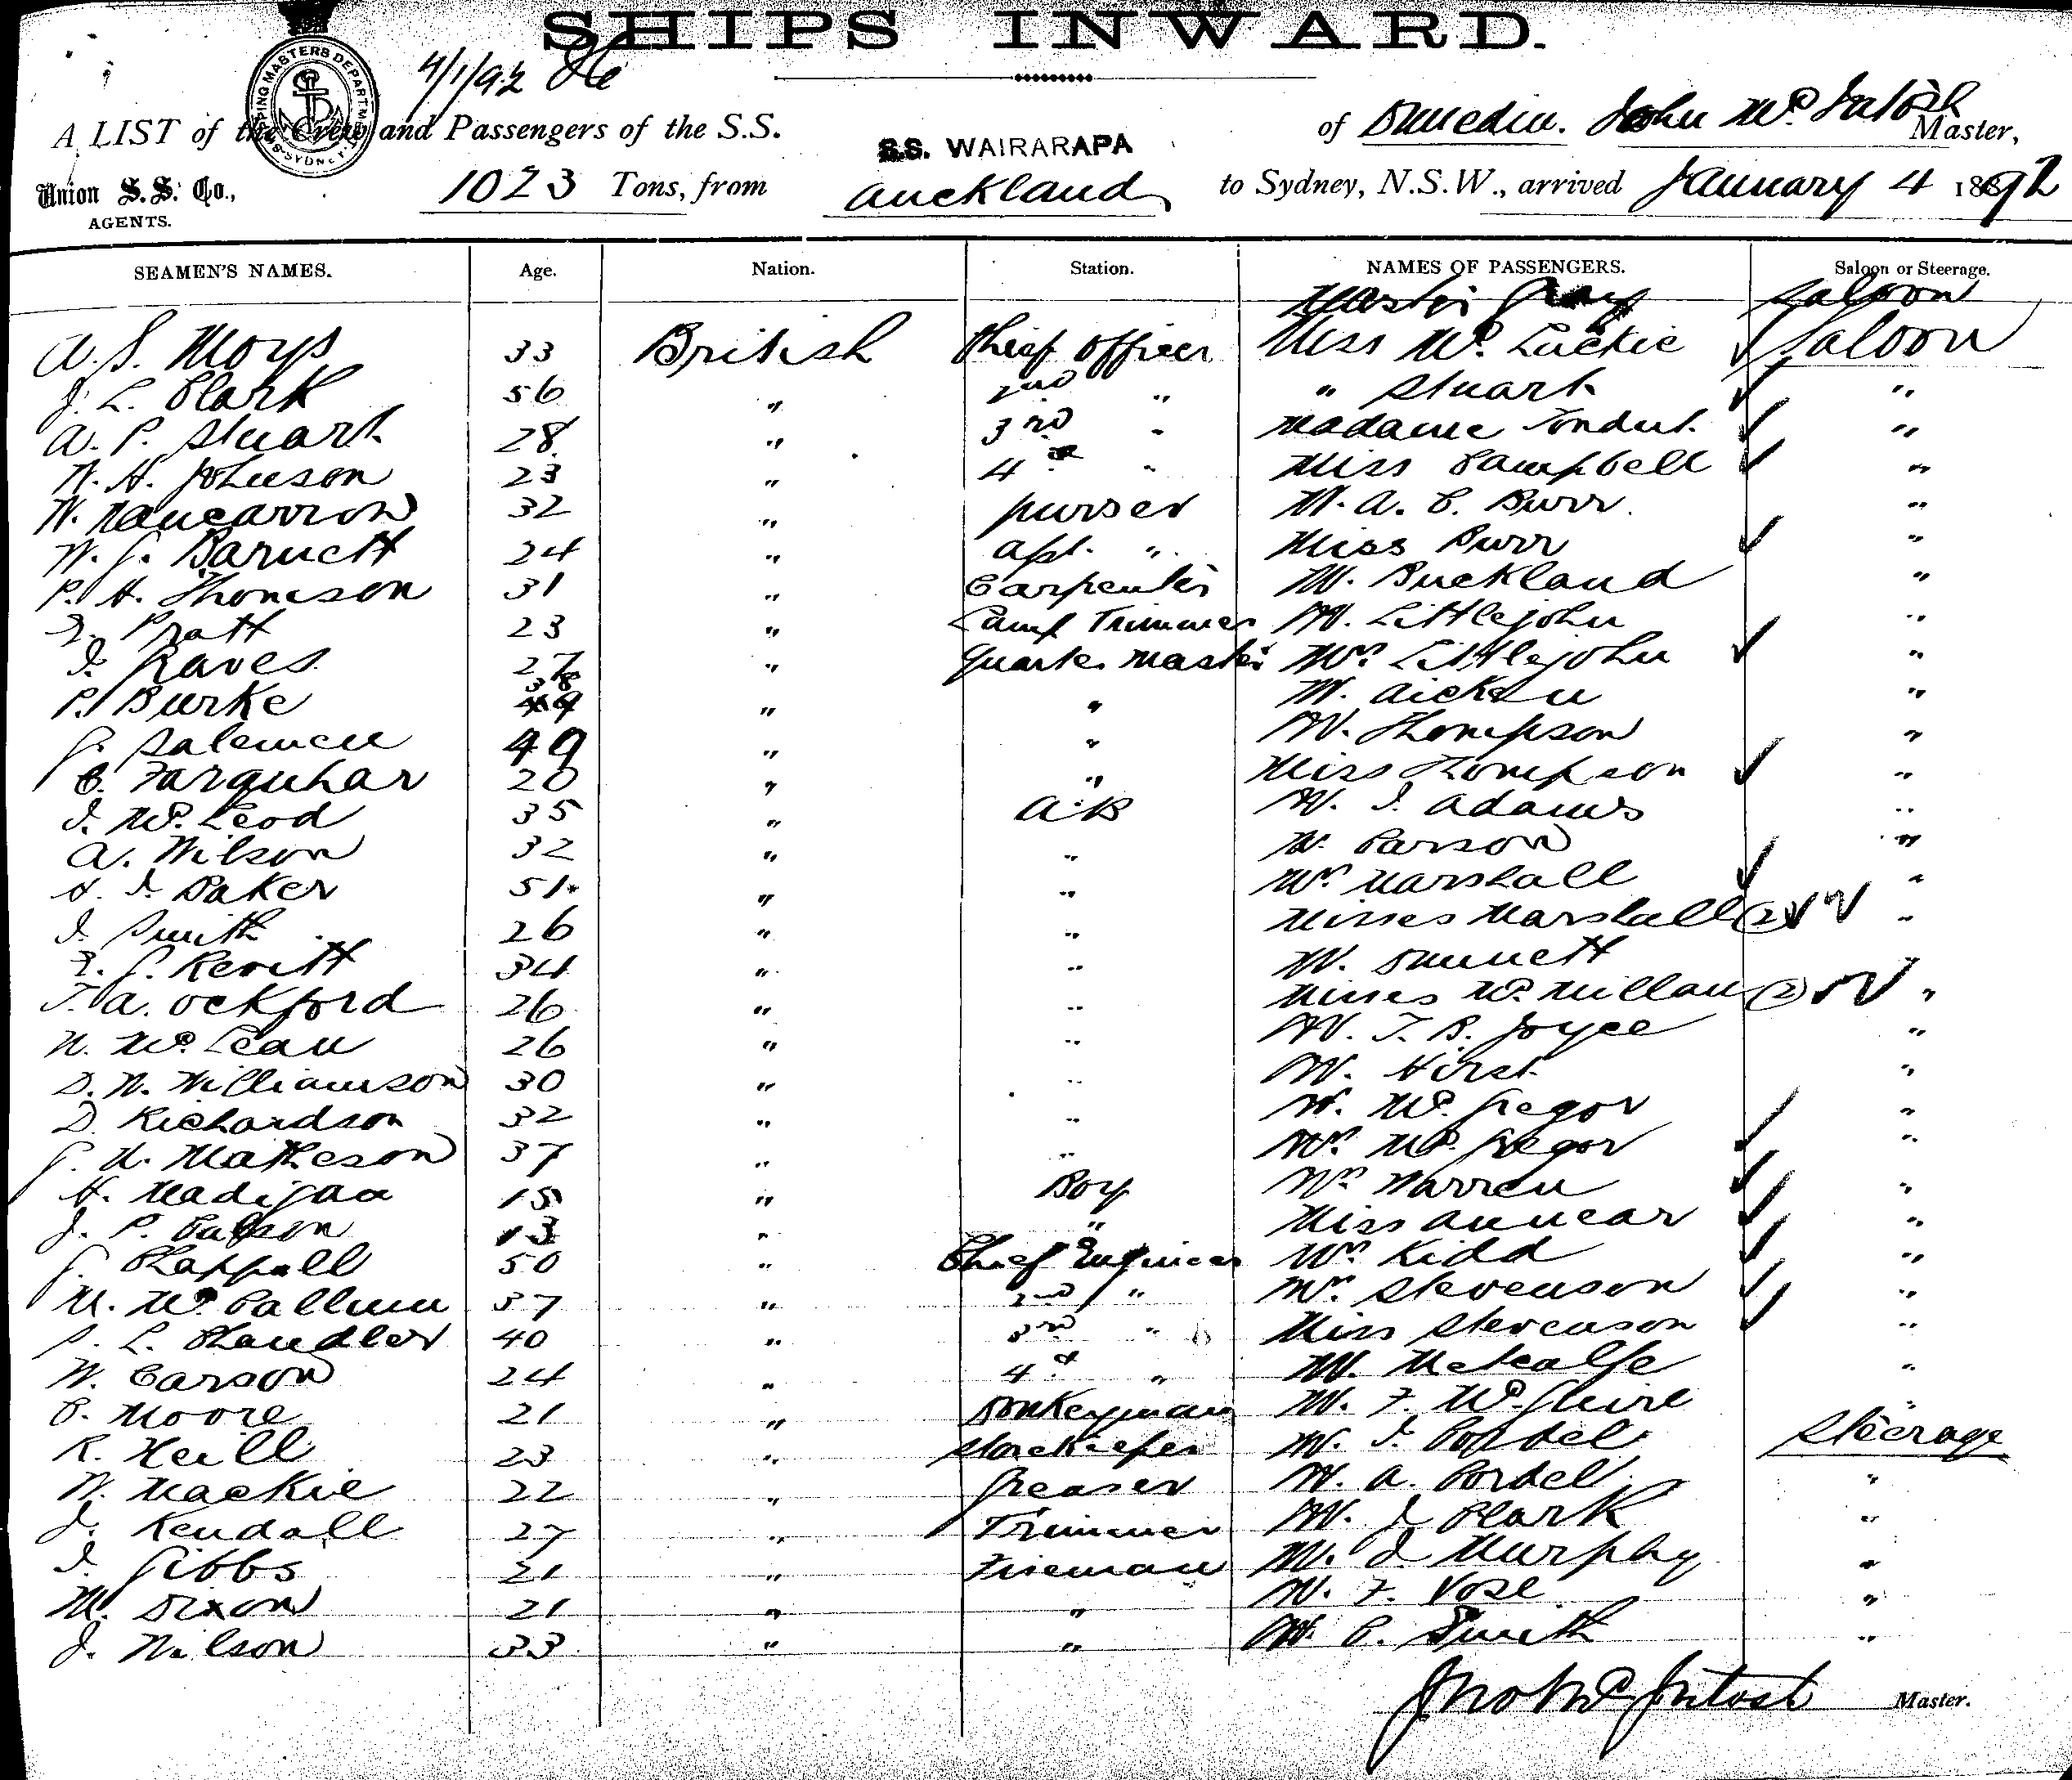 SHIPS INWARD.
4/1/92
A LIST of the Crew and Passengers of the S.S. S.S. WAIRARAPA of Dunedin. John McIntosh Master,
Union S.S. Co., AGENTS. 1023 Tons, from Auckland to Sydney, N.S.W., arrived January 4 1892
SEAMEN'S NAMES. Age. Nation. Station. NAMES OF PASSENGERS. Saloon or Steerage.
Master Gray Saloon
A. S. Moys 33 British Chief Officer Miss McLuckie Saloon
J. L. Clark 56 " 2nd " " Stuart "
A. P. Stuart 28 " 3rd " Madame "
W. H. Johnson 23 " 4th " Miss Campbell "
W. Nancarrow 32 " purser M. A. C. Burr "
W. G. Barnett 24 " asst. " Miss Burr "
P. H. Thomson 31 " Carpenter M. Buckland "
Pratt 23 " Lamp Trimmer M. Littlejohn "
J. Graves 27 " Quarter Master Mrs. Littlejohn "
P. Burke 38 " " M. Aicken "
G. 49 " " M. Thompson "
C. Farquhar 20 " " Miss Thompson "
J. McLeod 35 " A.B M. J. Adams "
A. Wilson 32 " " M. Carson "
H. J. Baker 51 " " Mrs. Marshall "
J. Smith 26 " " Misses Marshall (2) "
F. G. Revitt 34 " " M. Sinnett "
T. A. Ockford 26 " " Misses McMillan (2) "
N. McLean 26 " " M. T. B. Joyce "
D. W. Williamson 30 " " M. Hirst "
D. Richardson 32 " " M. McGregor "
G. M. Matheson 37 " " Mrs. McGregor "
H. Madigan 15 " Boy Mrs. Warren "
J. P. 13 " " Miss Annear "
G. Chappell 50 " Chief Engineer Mrs. Kidd "
M. McCallum 37 " 2nd " Mrs. Stevenson "
L. Chandler 40 " 3rd " Miss Stevenson "
W. Carson 24 " 4th " M. Metcalfe "
P. Moore 21 " Donkeyman M. F. McGuire "
R. Neill 23 " Storekeeper M. J. Cordel Steerage
W. Mackie 22 " Greaser M. A. Cordel "
J. Kendall 27 " Trimmer M. J Clark "
J. Gibbs 21 " Fireman M. J Murphy "
M. Dixon 21 " " M. F. Vose "
J. Wilson 33 " " M. C. Smith "
Jno McIntosh Master.